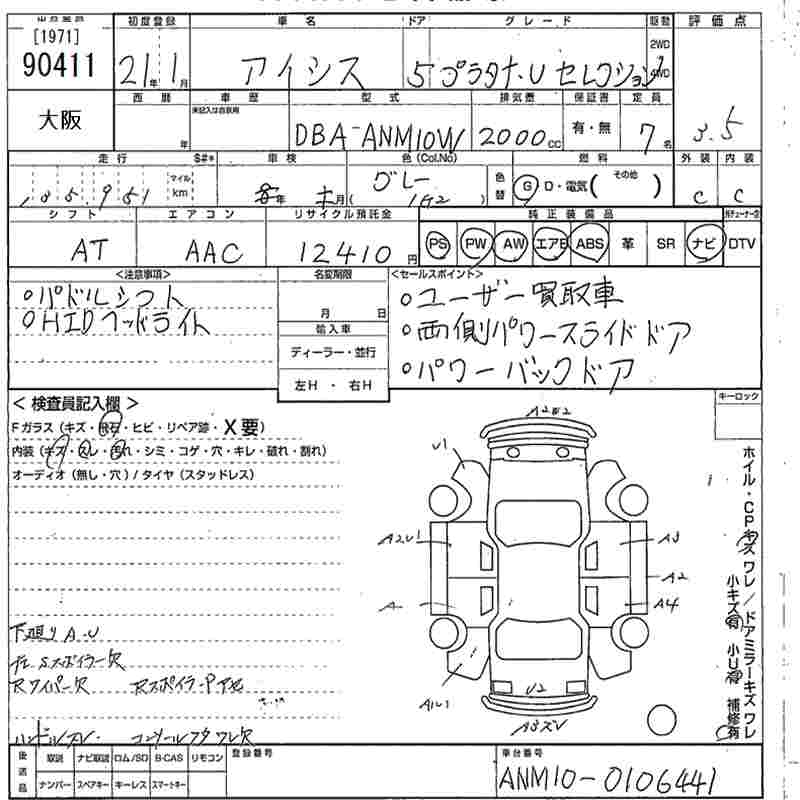 [1971]
90411
大阪
初度登録 車名 ドア グレード 駆動 評価点
21年 1月 アイシス 5 プラタナ.U セレクション 2WD 4WD
西暦 車歴 型式 排気量 保証書 定員
年 未記入は自家用 DBA-ANM10W 2000cc 有・無 7名 3.5
走行 S#* 車検 色(Col.No) 燃料 外装 内装
マイル km 年 月 グレー 1G2 色替 G D・電気( その他 ) C C
シフト エアコン リサイクル預託金 純正装備品
AT AAC 12410円 PS PW AW エアB ABS 革 SR ナビ DTV
<注意事項> 名変期限 <セールスポイント>
○パドルシフト
○HIDヘッドライト
月 日
輸入車
ディーラー・並行
左H・右H
○ユーザー買取車
○両側パワースライドドア
○パワーバックドア
キーロック
<検査員記入欄>
Fガラス(キズ・飛石・ヒビ・リペア跡・X要)
内装(キズ・スレ・汚れ・シミ・コゲ・穴・キレ・破れ・割れ)
オーディオ(無し・穴)/タイヤ(スタッドレス)
下廻りA.U
Rワイパー欠
ハンドルスレ
U1
A2U1
A
A1U1
A3
A2
A4
U2
ホイル・CPキズ ワレ/ドアミラーキズ ワレ
小キズ有 小U有 補修有
後送品 取説 ナビ取説 ロム/SD B-CAS リモコン 登録番号 車台番号
ナンバー スペアキー キーレス スマートキー ANM10-0106441